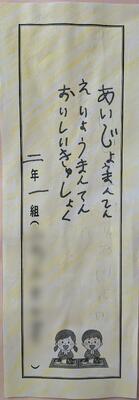 あいじょうまんてん
えいようまんてん
おいしいきゅうしょく
二年一組（　　　）